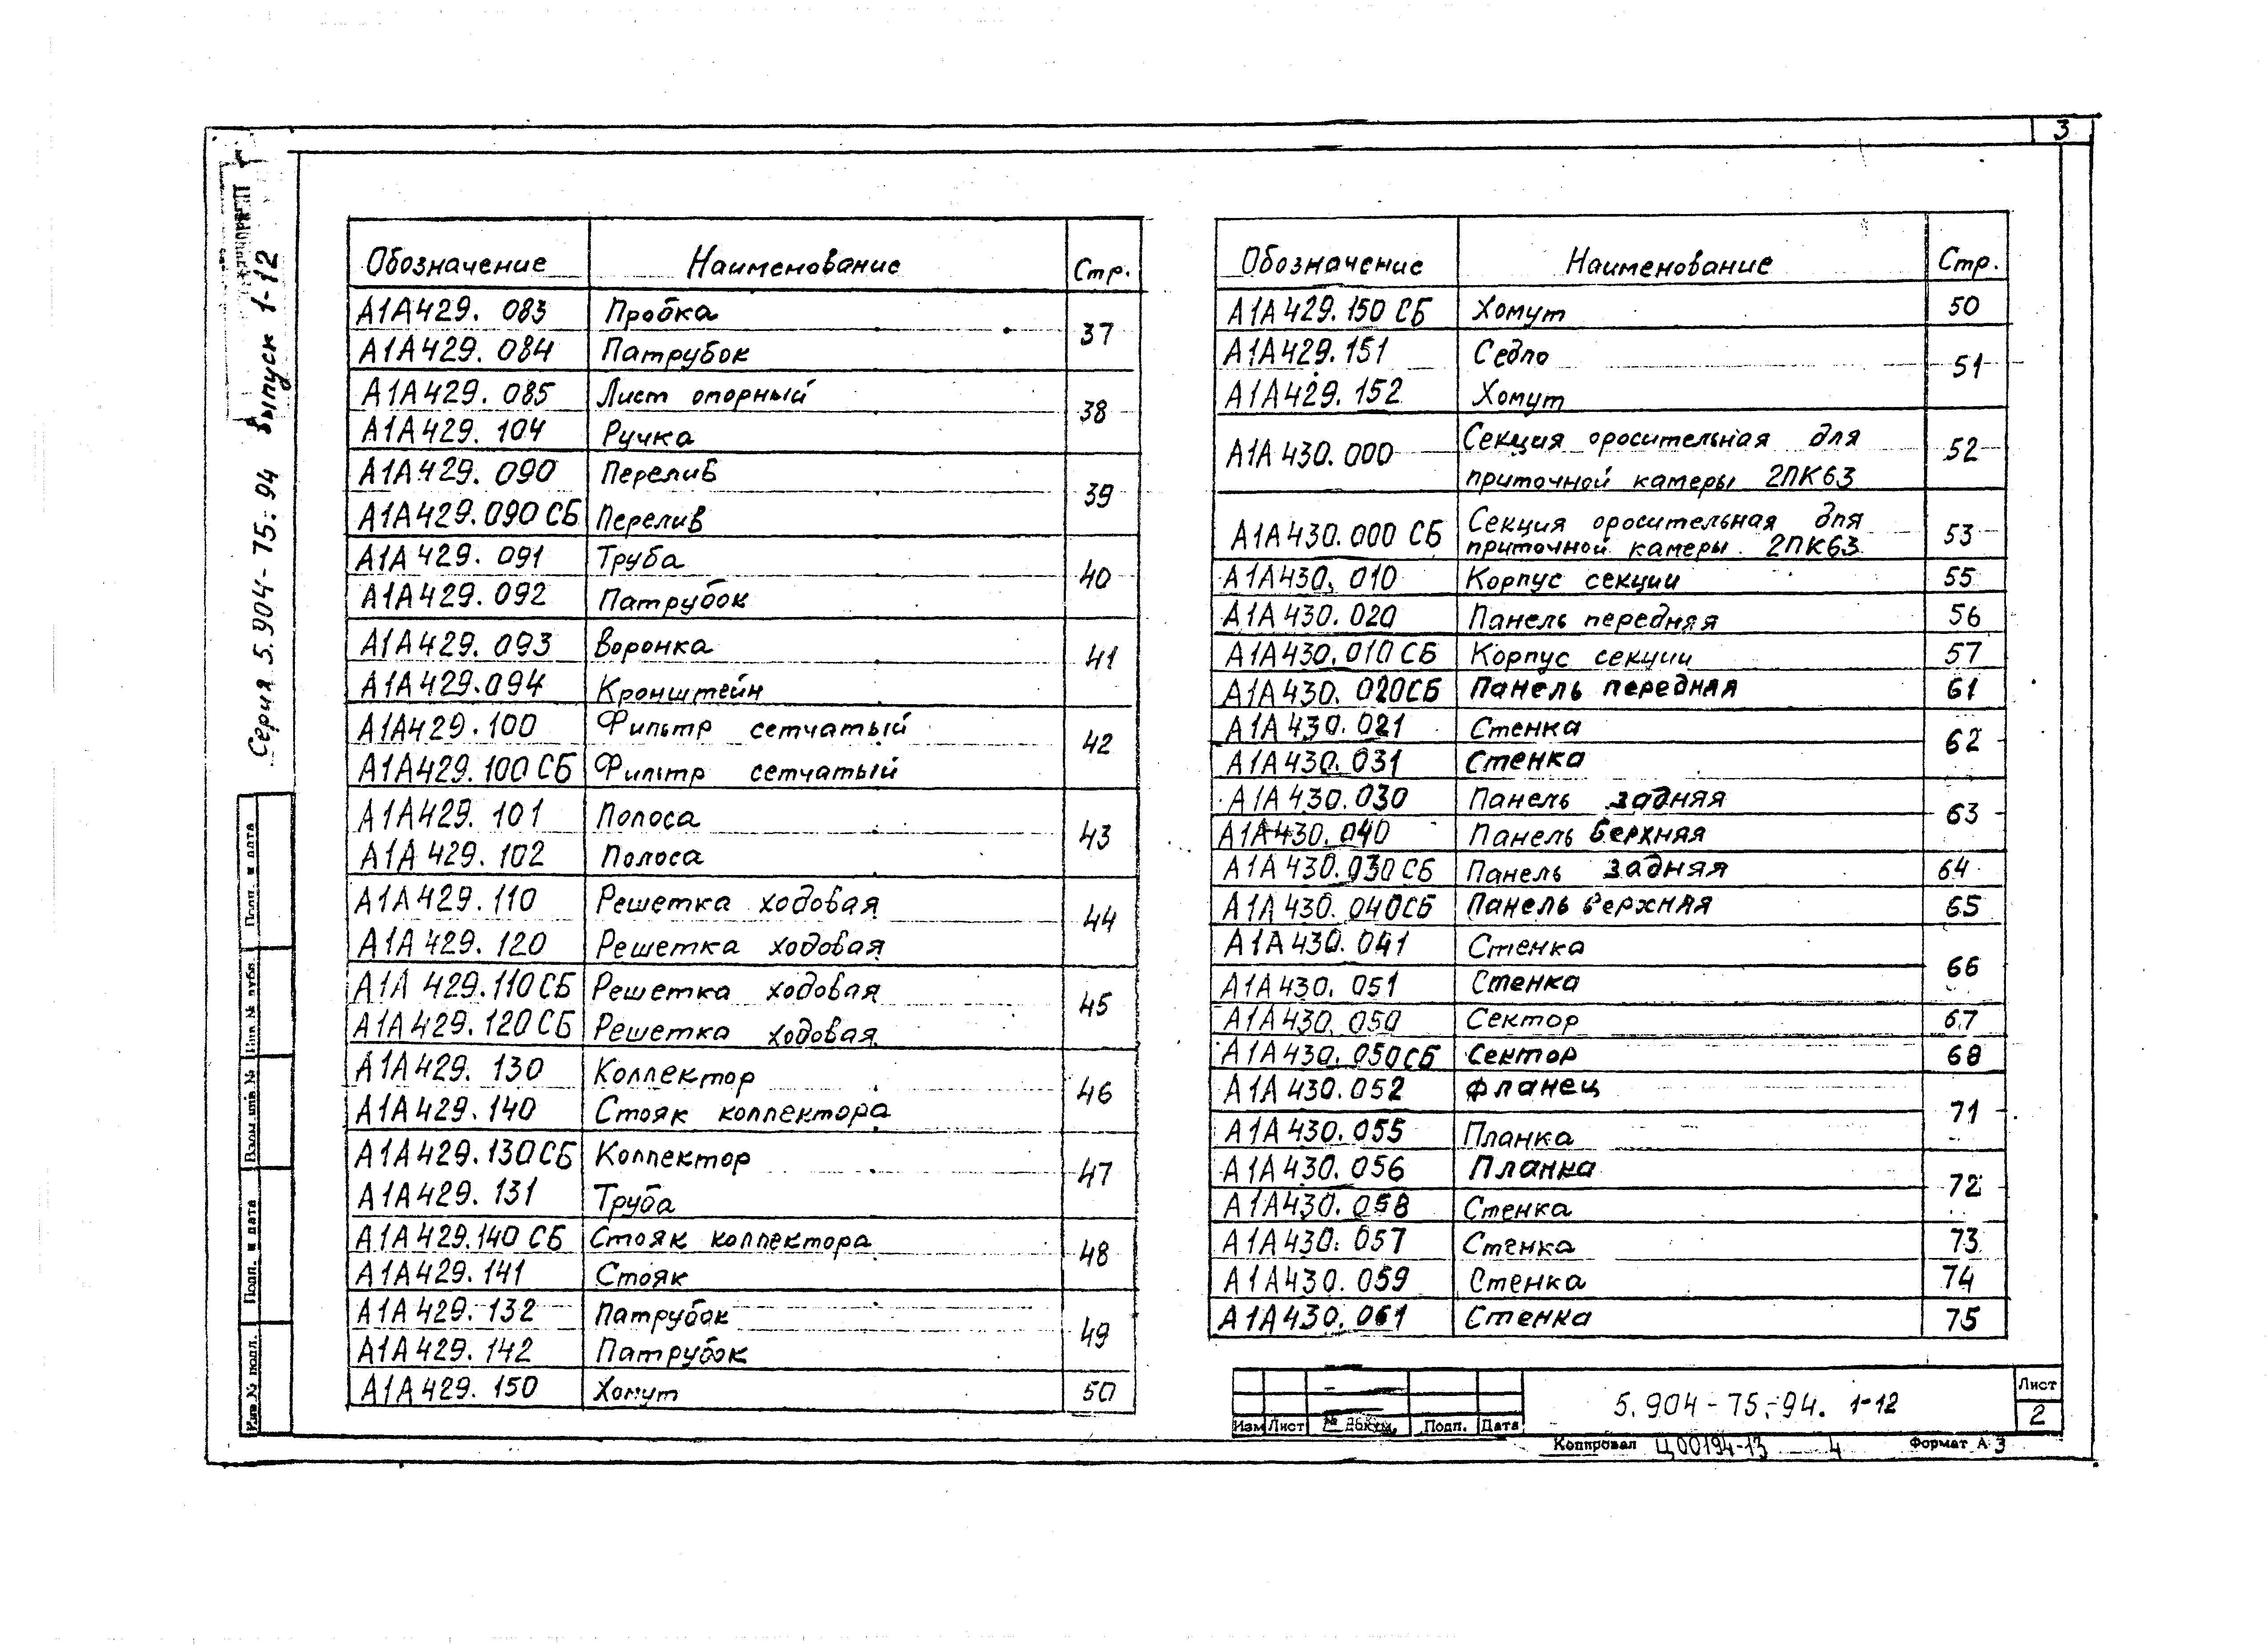 3
Серия 5.904-75.94 выпуск 1-12
Обозначение Наименование Стр.
А1А429.083 Пробка 37
А1А429.084 Патрубок
А1А429.085 Лист опорный 38
А1А429.104 Ручка
А1А429.090 Перелив 39
А1А429.090 СБ Перелив
А1А429.091 Труба 40
А1А429.092 Патрубок
А1А429.093 Воронка 41
А1А429.094 Кронштейн
А1А429.100 Фильтр сетчатый 42
А1А429.100 СБ Фильтр сетчатый
А1А429.101 Полоса 43
А1А429.102 Полоса
А1А429.110 Решетка ходовая 44
А1А429.120 Решетка ходовая
А1А429.110 СБ Решетка ходовая 45
А1А429.120 СБ Решетка ходовая
А1А429.130 Коллектор 46
А1А429.140 Стояк коллектора
А1А429.130 СБ Коллектор 47
А1А429.131 Труба
А1А429.140 СБ Стояк коллектора 48
А1А429.141 Стояк
А1А429.132 Патрубок 49
А1А429.142 Патрубок
А1А429.150 Хомут 50
Обозначение Наименование Стр.
А1А429.150 СБ Хомут 50
А1А429.151 Седло 51
А1А429.152 Хомут
А1А430.000 Секция оросительная для 52
приточной камеры 2ПК63
А1А430.000 СБ Секция оросительная для 53
приточной камеры 2ПК63
А1А430.010 Корпус секции 55
А1А430.020 Панель передняя 56
А1А430.010 СБ Корпус секции 57
А1А430.020 СБ Панель передняя 61
А1А430.021 Стенка 62
А1А430.031 Стенка
А1А430.030 Панель задняя 63
А1А430.040 Панель верхняя
А1А430.030 СБ Панель задняя 64
А1А430.040 СБ Панель верхняя 65
А1А430.041 Стенка 66
А1А430.051 Стенка
А1А430.050 Сектор 67
А1А430.050 СБ Сектор 68
А1А430.052 Фланец 71
А1А430.055 Планка
А1А430.056 Планка 72
А1А430.058 Стенка
А1А430.057 Стенка 73
А1А430.059 Стенка 74
А1А430.061 Стенка 75
Подп. и дата
Инв. № дубл.
Взам. инв. №
Подп. и дата
Инв. № подл.
Изм Лист № докум. Подп. Дата
5.904-75.-94. 1-12
Лист
2
Копировал Ц00194-13 4 Формат А3